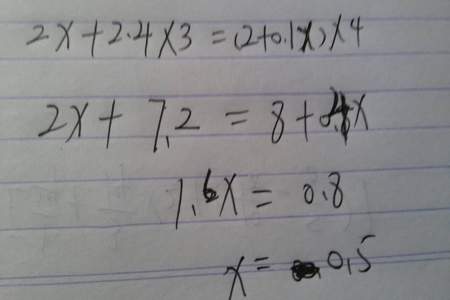 2x+2.4×3=(2+0.1x)×4
2x+7.2=8+0.4x
1.6x=0.8
x=0.5